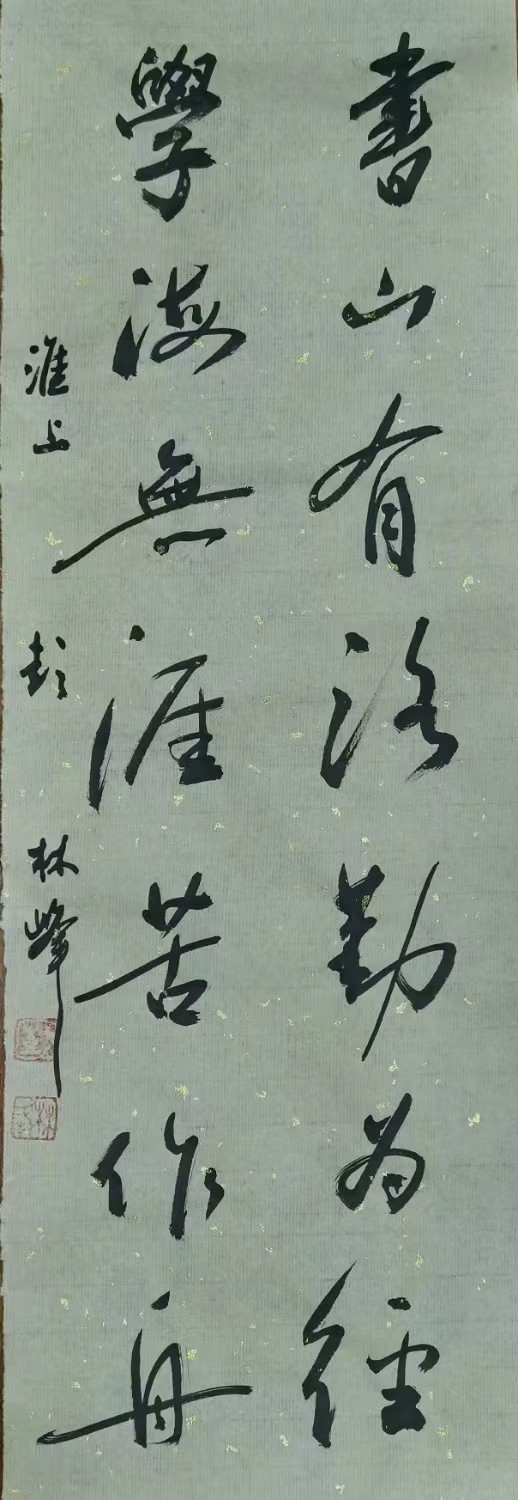 書山有路勤為徑
學海無涯苦作舟
淮上 彭林峰